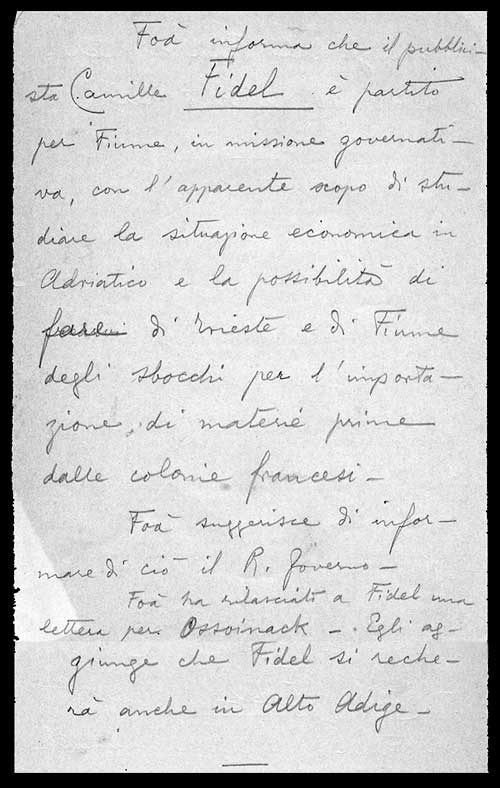 Foà informa che il pubblici-
sta Camille Fidel è partito
per Fiume, in missione governati-
va, con l'apparente scopo di stu-
diare la situazione economica in
Adriatico e la possibilità di
fare di Trieste e di Fiume
degli sbocchi per l'importa-
zione di materie prime
dalle colonie francesi -
Foà suggerisce di infor-
mare di ciò il R. Governo -
Foà ha rilasciato a Fidel una
lettera per Ossoinack - Egli ag-
giunge che Fidel si reche-
rà anche in Alto Adige -